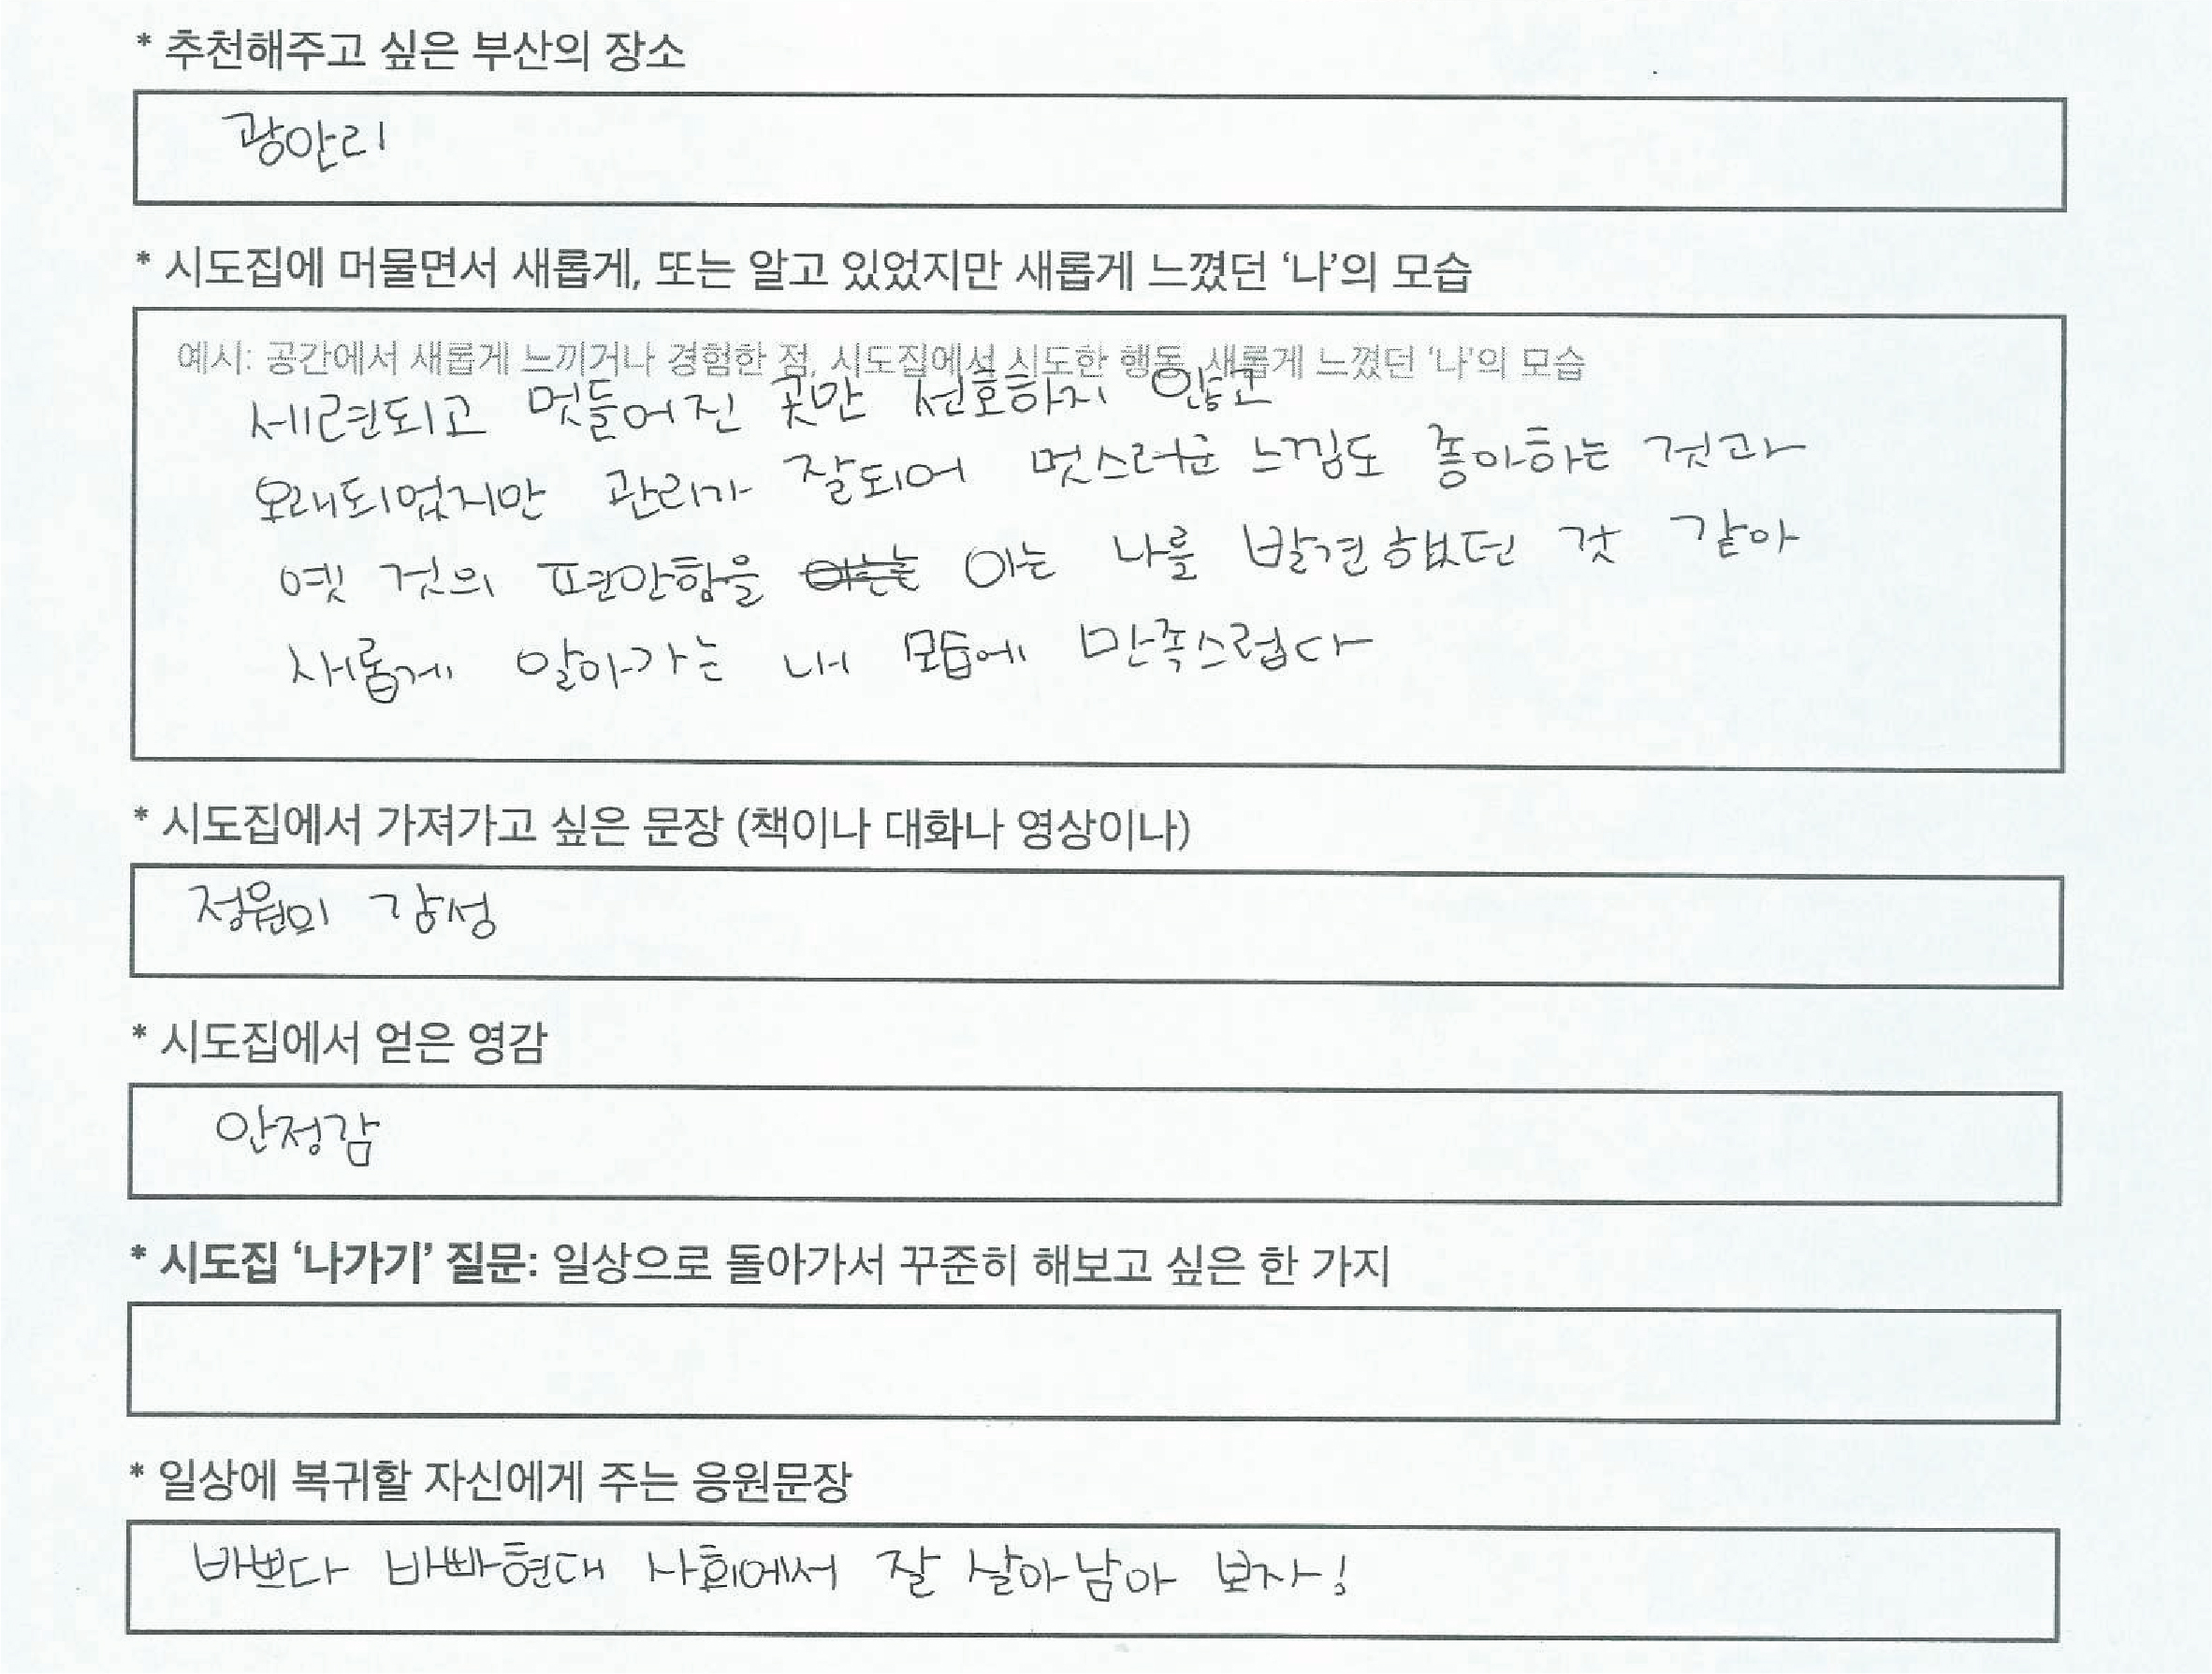 * 추천해주고 싶은 부산의 장소
광안리
* 시도집에 머물면서 새롭게, 또는 알고 있었지만 새롭게 느꼈던 ‘나’의 모습
예시: 공간에서 새롭게 느끼거나 경험한 점, 시도집에서 시도한 행동, 새롭게 느꼈던 ‘나’의 모습
세련되고 멋들어진 곳만 선호하지 않고
오래되었지만 관리가 잘되어 멋스러운 느낌도 좋아하는 것과
옛 것의 편안함을 아는 나를 발견했던 것 같아
새롭게 알아가는 내 모습에 만족스럽다
* 시도집에서 가져가고 싶은 문장 (책이나 대화나 영상이나)
정원의 감성
* 시도집에서 얻은 영감
안정감
* 시도집 ‘나가기’ 질문: 일상으로 돌아가서 꾸준히 해보고 싶은 한 가지
* 일상에 복귀할 자신에게 주는 응원문장
바쁘다 바빠현대 사회에서 잘 살아남아 보자!